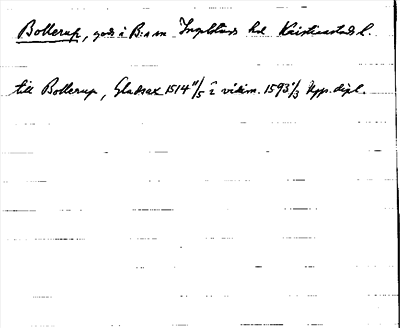 Bollerup, gods i B:a sn Ingelstads hd Kristianstads l.
till Bollerup, Gladsax 1514 11/5 i vidim. 1593 1/3 Upps. dipl.